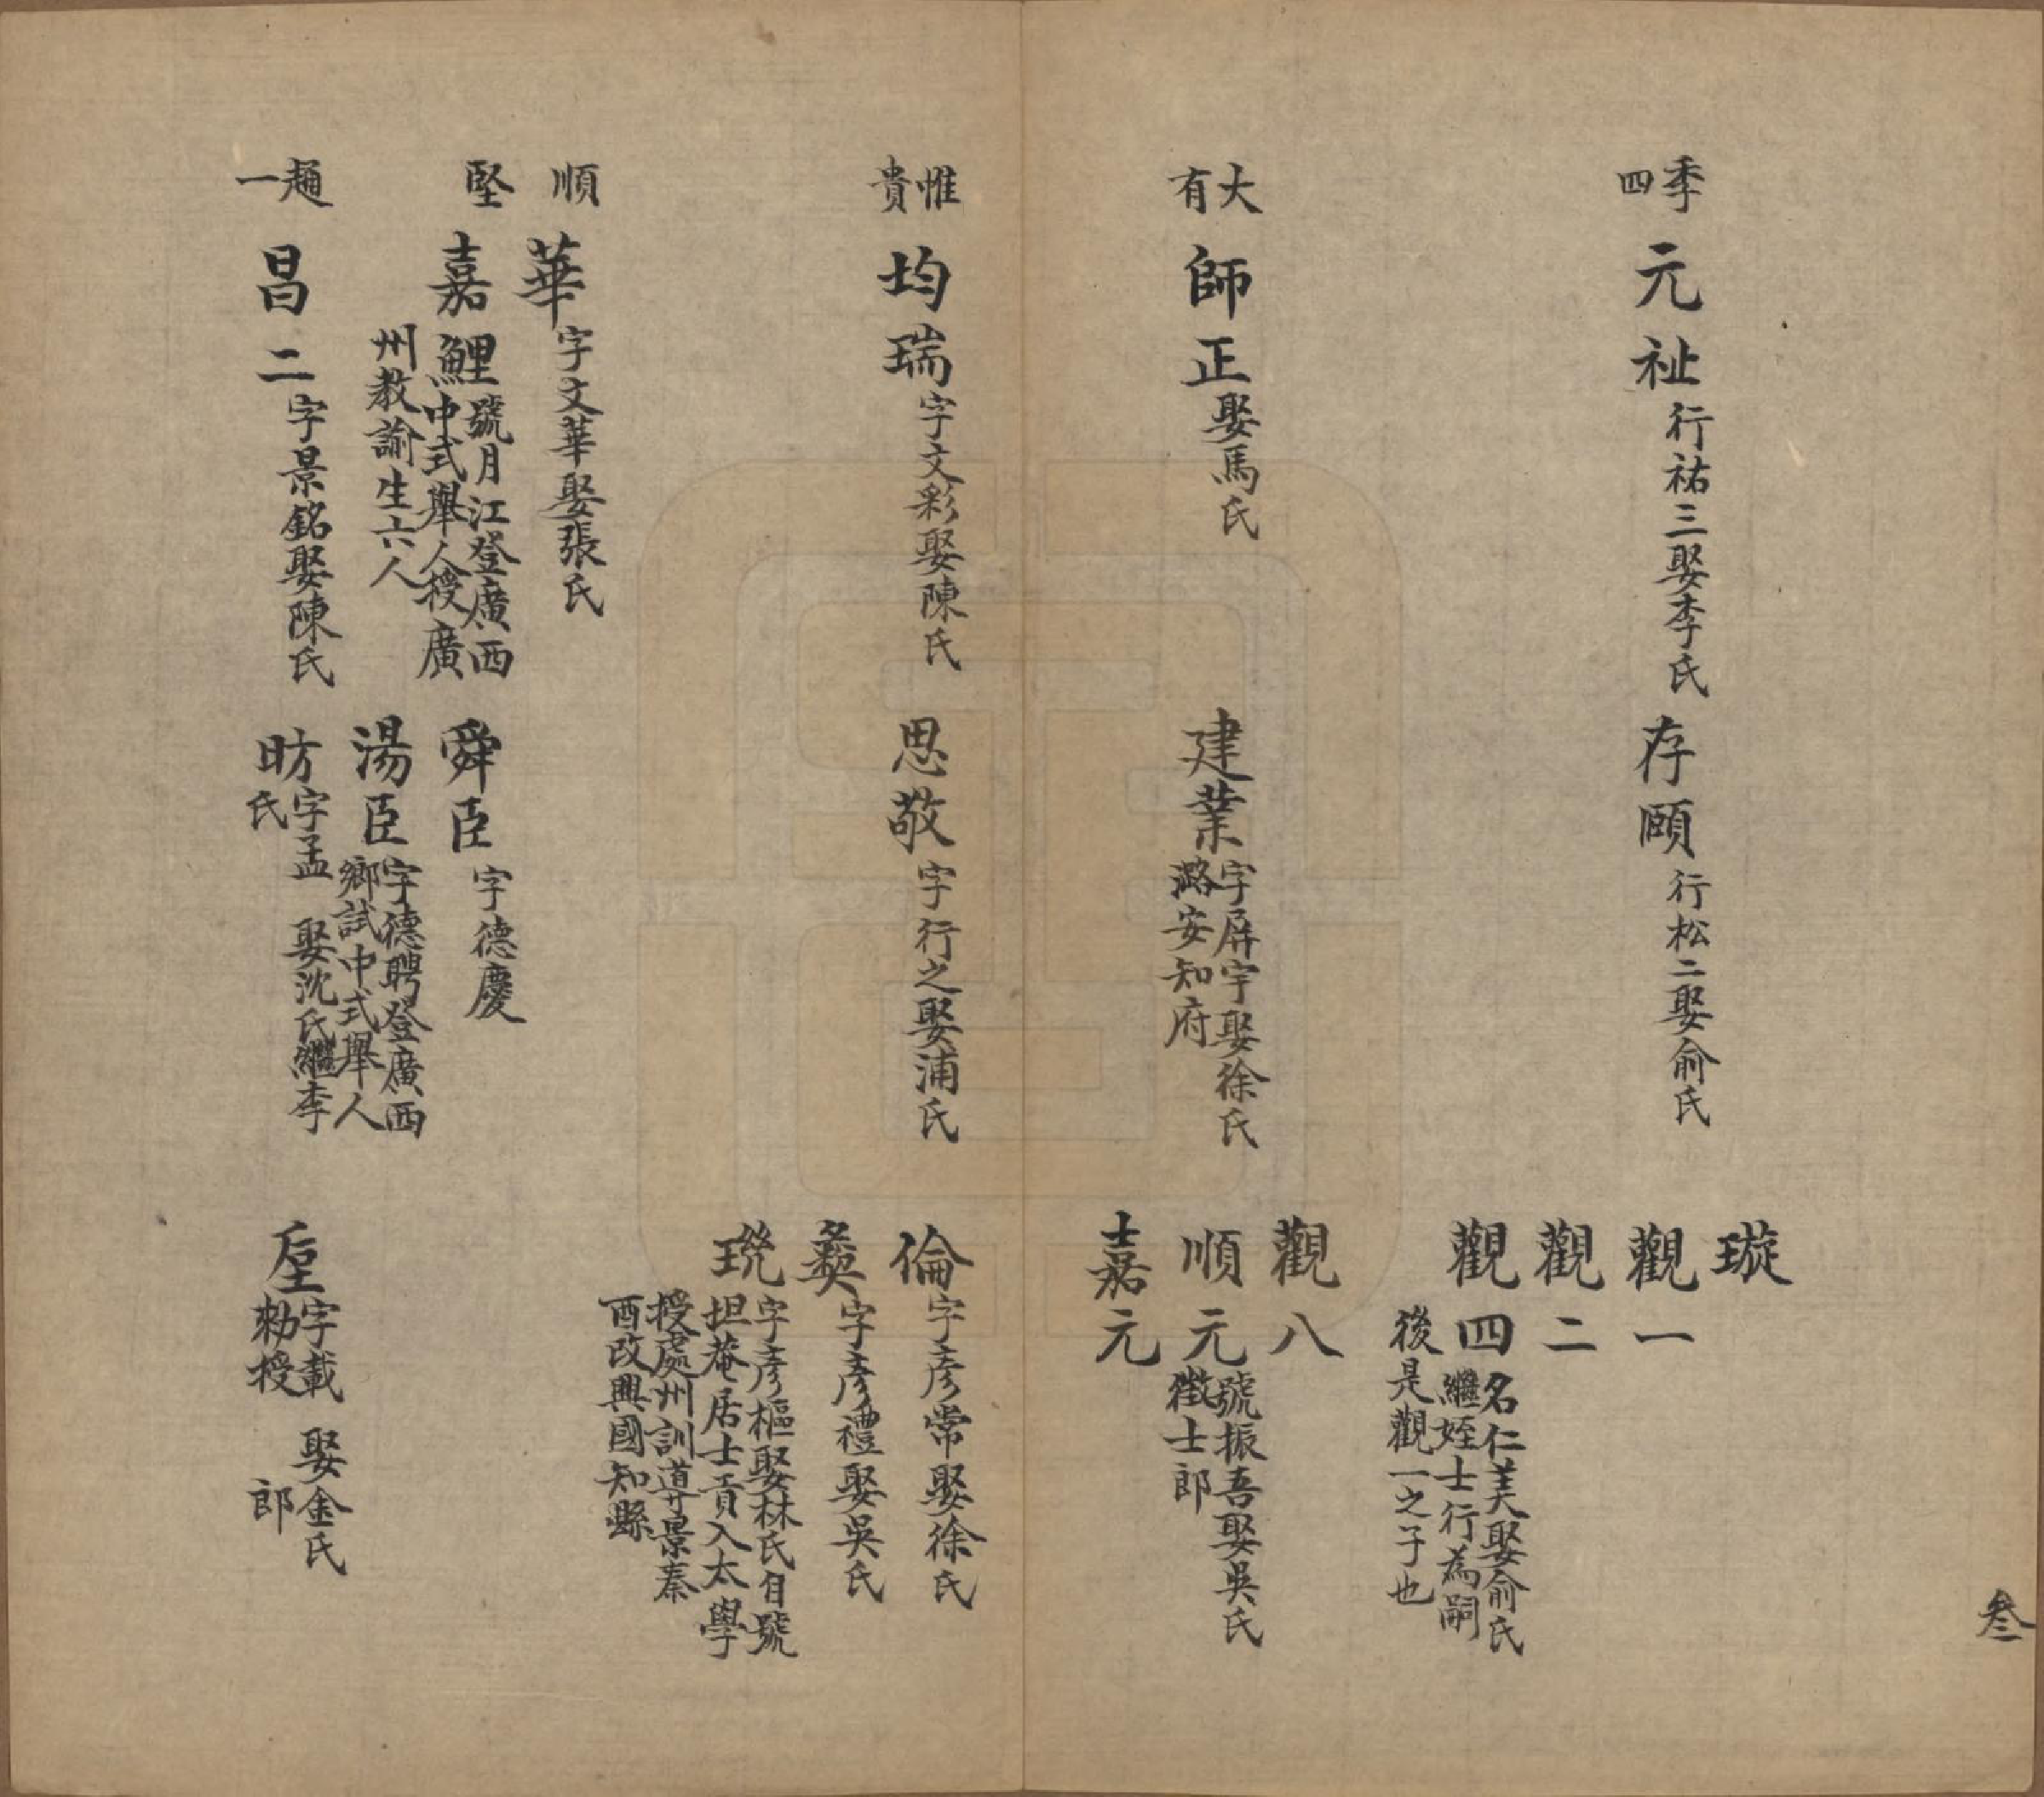 叄
季四
元祉行祐三娶李氏
存頤行松二娶俞氏
璇
觀一
觀二
觀四名仁美娶俞氏
繼姪士行為嗣
後是觀一之子也
大有
師正娶馬氏
建業字屏宇娶徐氏
潞安知府
觀八
順元號振吾娶吳氏
徵士郎
嘉元
惟貴
均瑞字文彩娶陳氏
思敬字行之娶浦氏
倫字彥常娶徐氏
彝字彥禮娶吳氏
字彥樞娶林氏自號
担菴居士貢入太學
授處州訓導景泰
酉改興國知縣
順
華字文華娶張氏
堅
嘉鯉號月江登廣西
中式舉人授廣
州教諭生六人
舜臣字德慶
湯臣字德聘登廣西
鄉試中式舉人
一
昌二字景銘娶陳氏
昉字孟 娶沈氏繼李
氏
字載 娶金氏
勑授 郎